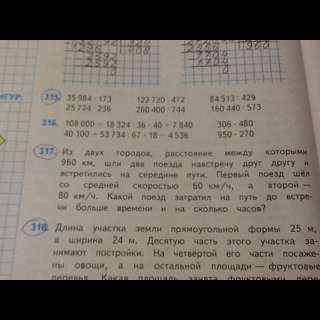 ИГУР:
315. 35 984 · 173 122 720 · 472 84 513 · 429
25 724 · 236 260 400 · 744 160 440 · 573
316. 108 000 − 18 324 · 36 − 40 · 7 840 306 · 480
40 100 + 53 734 · 67 − 18 · 4 536 950 · 270
317. Из двух городов, расстояние между которыми
960 км, шли два поезда навстречу друг другу и
встретились на середине пути. Первый поезд шёл
со средней скоростью 60 км/ч, а второй —
80 км/ч. Какой поезд затратил на путь до встре-
чи больше времени и на сколько часов?
318. Длина участка земли прямоугольной формы 25 м,
а ширина 24 м. Десятую часть этого участка за-
нимают постройки. На четвёртой его части посаже-
ны овощи, а на остальной площади — фруктовые
деревья. Какая площадь занята фруктовыми дере-